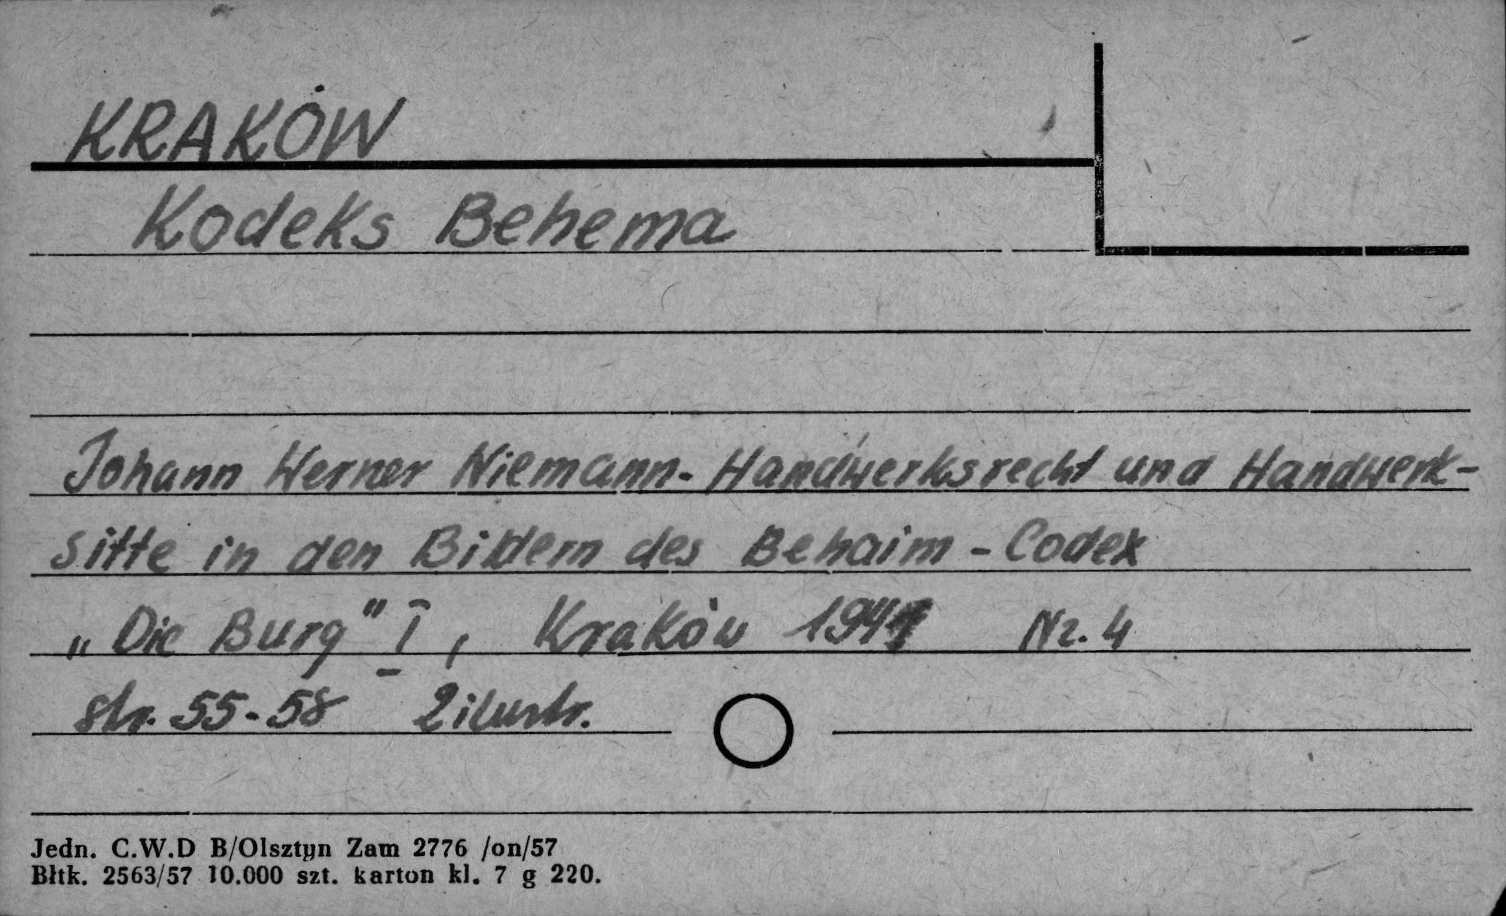 KRAKÓW
Kodeks Behema
Johann Werner Niemann - Handwerksrecht und Handwerk-
sitte in den Bildern des Behaim - Codex
„Die Burg" I, Kraków 1941 Nr. 4
str. 55-58 2 ilustr.
Jedn. C.W.D B/Olsztyn Zam 2776 /on/57
Błtk. 2563/57 10.000 szt. karton kl. 7 g 220.